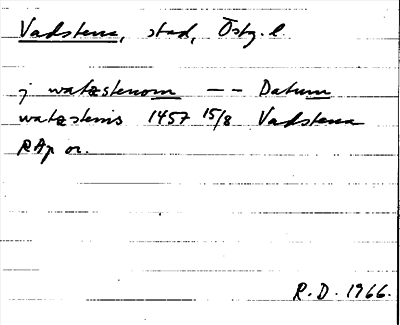 Vadstena, stad, Östg. l.
j watæstenom -- Datum
watæstenis 1457 15/8 Vadstena
RAp or.
R.D. 1966.